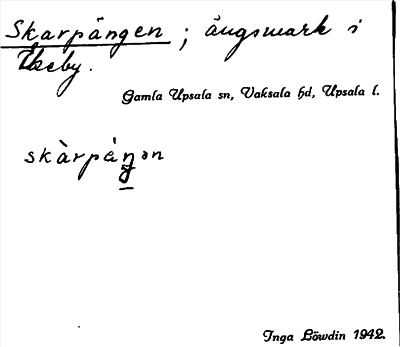 Skarpängen ; ängsmark i
Ekeby.
Gamla Upsala sn, Vaksala hd, Upsala l.
skàrpäŋən
Inga Löwdin 1942.